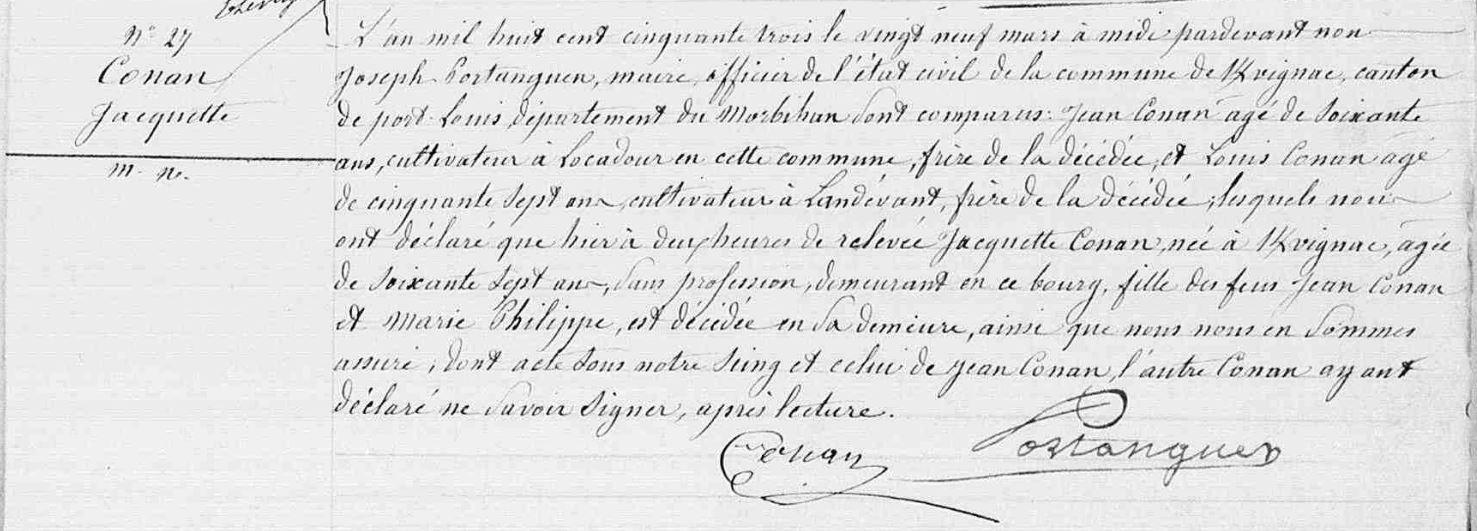 N° 27
Conan
Jacquette
m. n.
L'an mil huit cent cinquante trois le vingt neuf mars à midi pardevant nou
Joseph Portanguen, maire, officier de l'état civil de la commune de Kvignac, canton
de port-Louis, département du Morbihan sont comparus: Jean Conan agé de soixante
ans, cultivateur à Locadour en cette commune, frère de la décédée, et Louis Conan agé
de cinquante sept ans, cultivateur à Landévant, frère de la décédée, lesquels nous
ont déclaré que hier à deux heures de relevée Jacquette Conan, née à Kvignac, agée
de soixante sept ans, sans profession, demeurant en ce bourg, fille des feus Jean Conan
et Marie Philippe, est décédée en sa demeure, ainsi que nous nous en sommes
assuré; dont acte sous notre seing et celui de Jean Conan, l'autre Conan ayant
déclaré ne savoir signer, après lecture.
Conan Portanguen